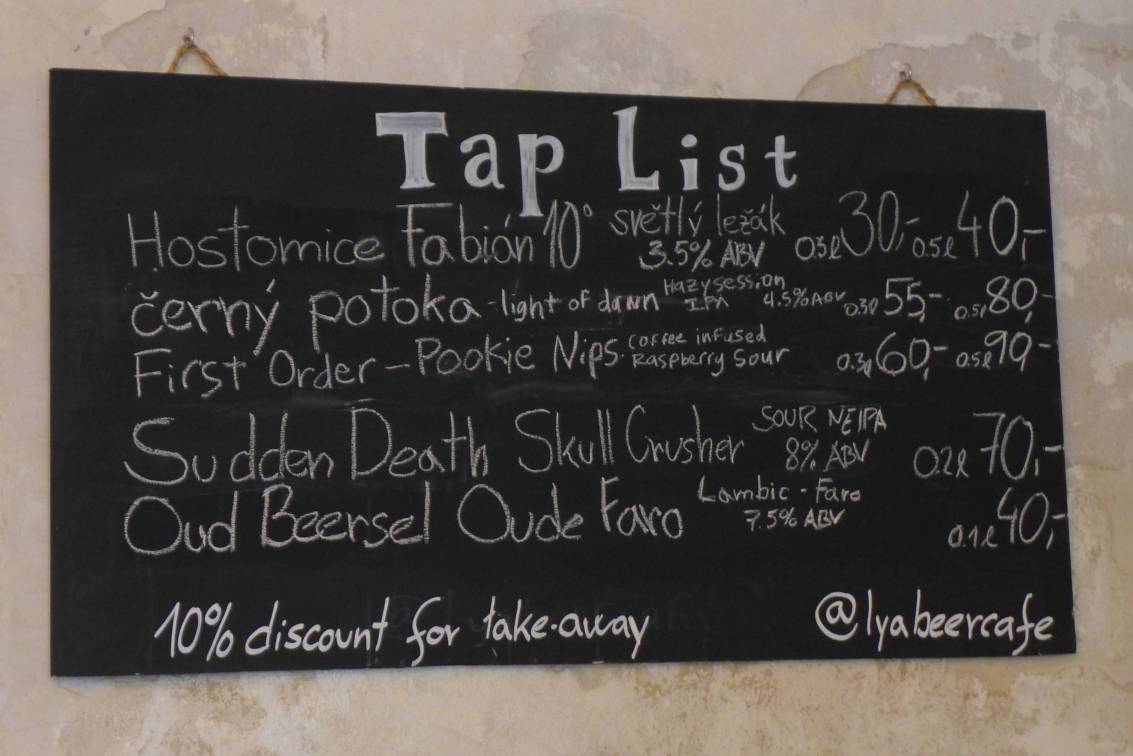 Tap List
Hostomice Fabián 10° světlý ležák 3.5% ABV 0.3l 30,- 0.5l 40,-
černý potoka - light of dawn Hazy session IPA 4.5% ABV 0.3l 55,- 0.5l 80,-
First Order - Pookie Nips coffee infused Raspberry Sour 0.3l 60,- 0.5l 90,-
Sudden Death Skull Crusher SOUR NEIPA 8% ABV 0.2l 70,-
Oud Beersel Oude Faro Lambic - Faro 7.5% ABV 0.1l 40,-
10% discount for take-away @lyabeercafe